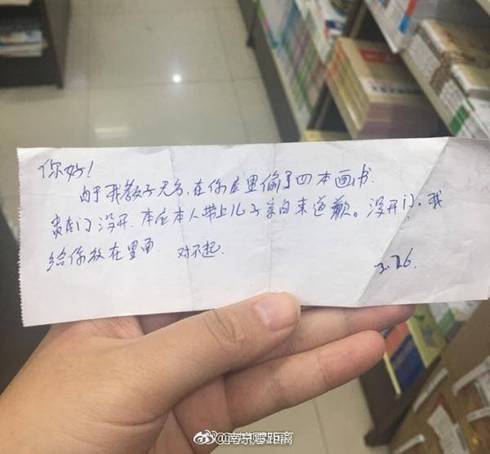 你好!
由于我教子无方,在你店里偷了四本画书.
门没开.本应本人带上儿子亲自来道歉。没开门,我
给你放在里面 对不起.
3.26.
@南京零距离